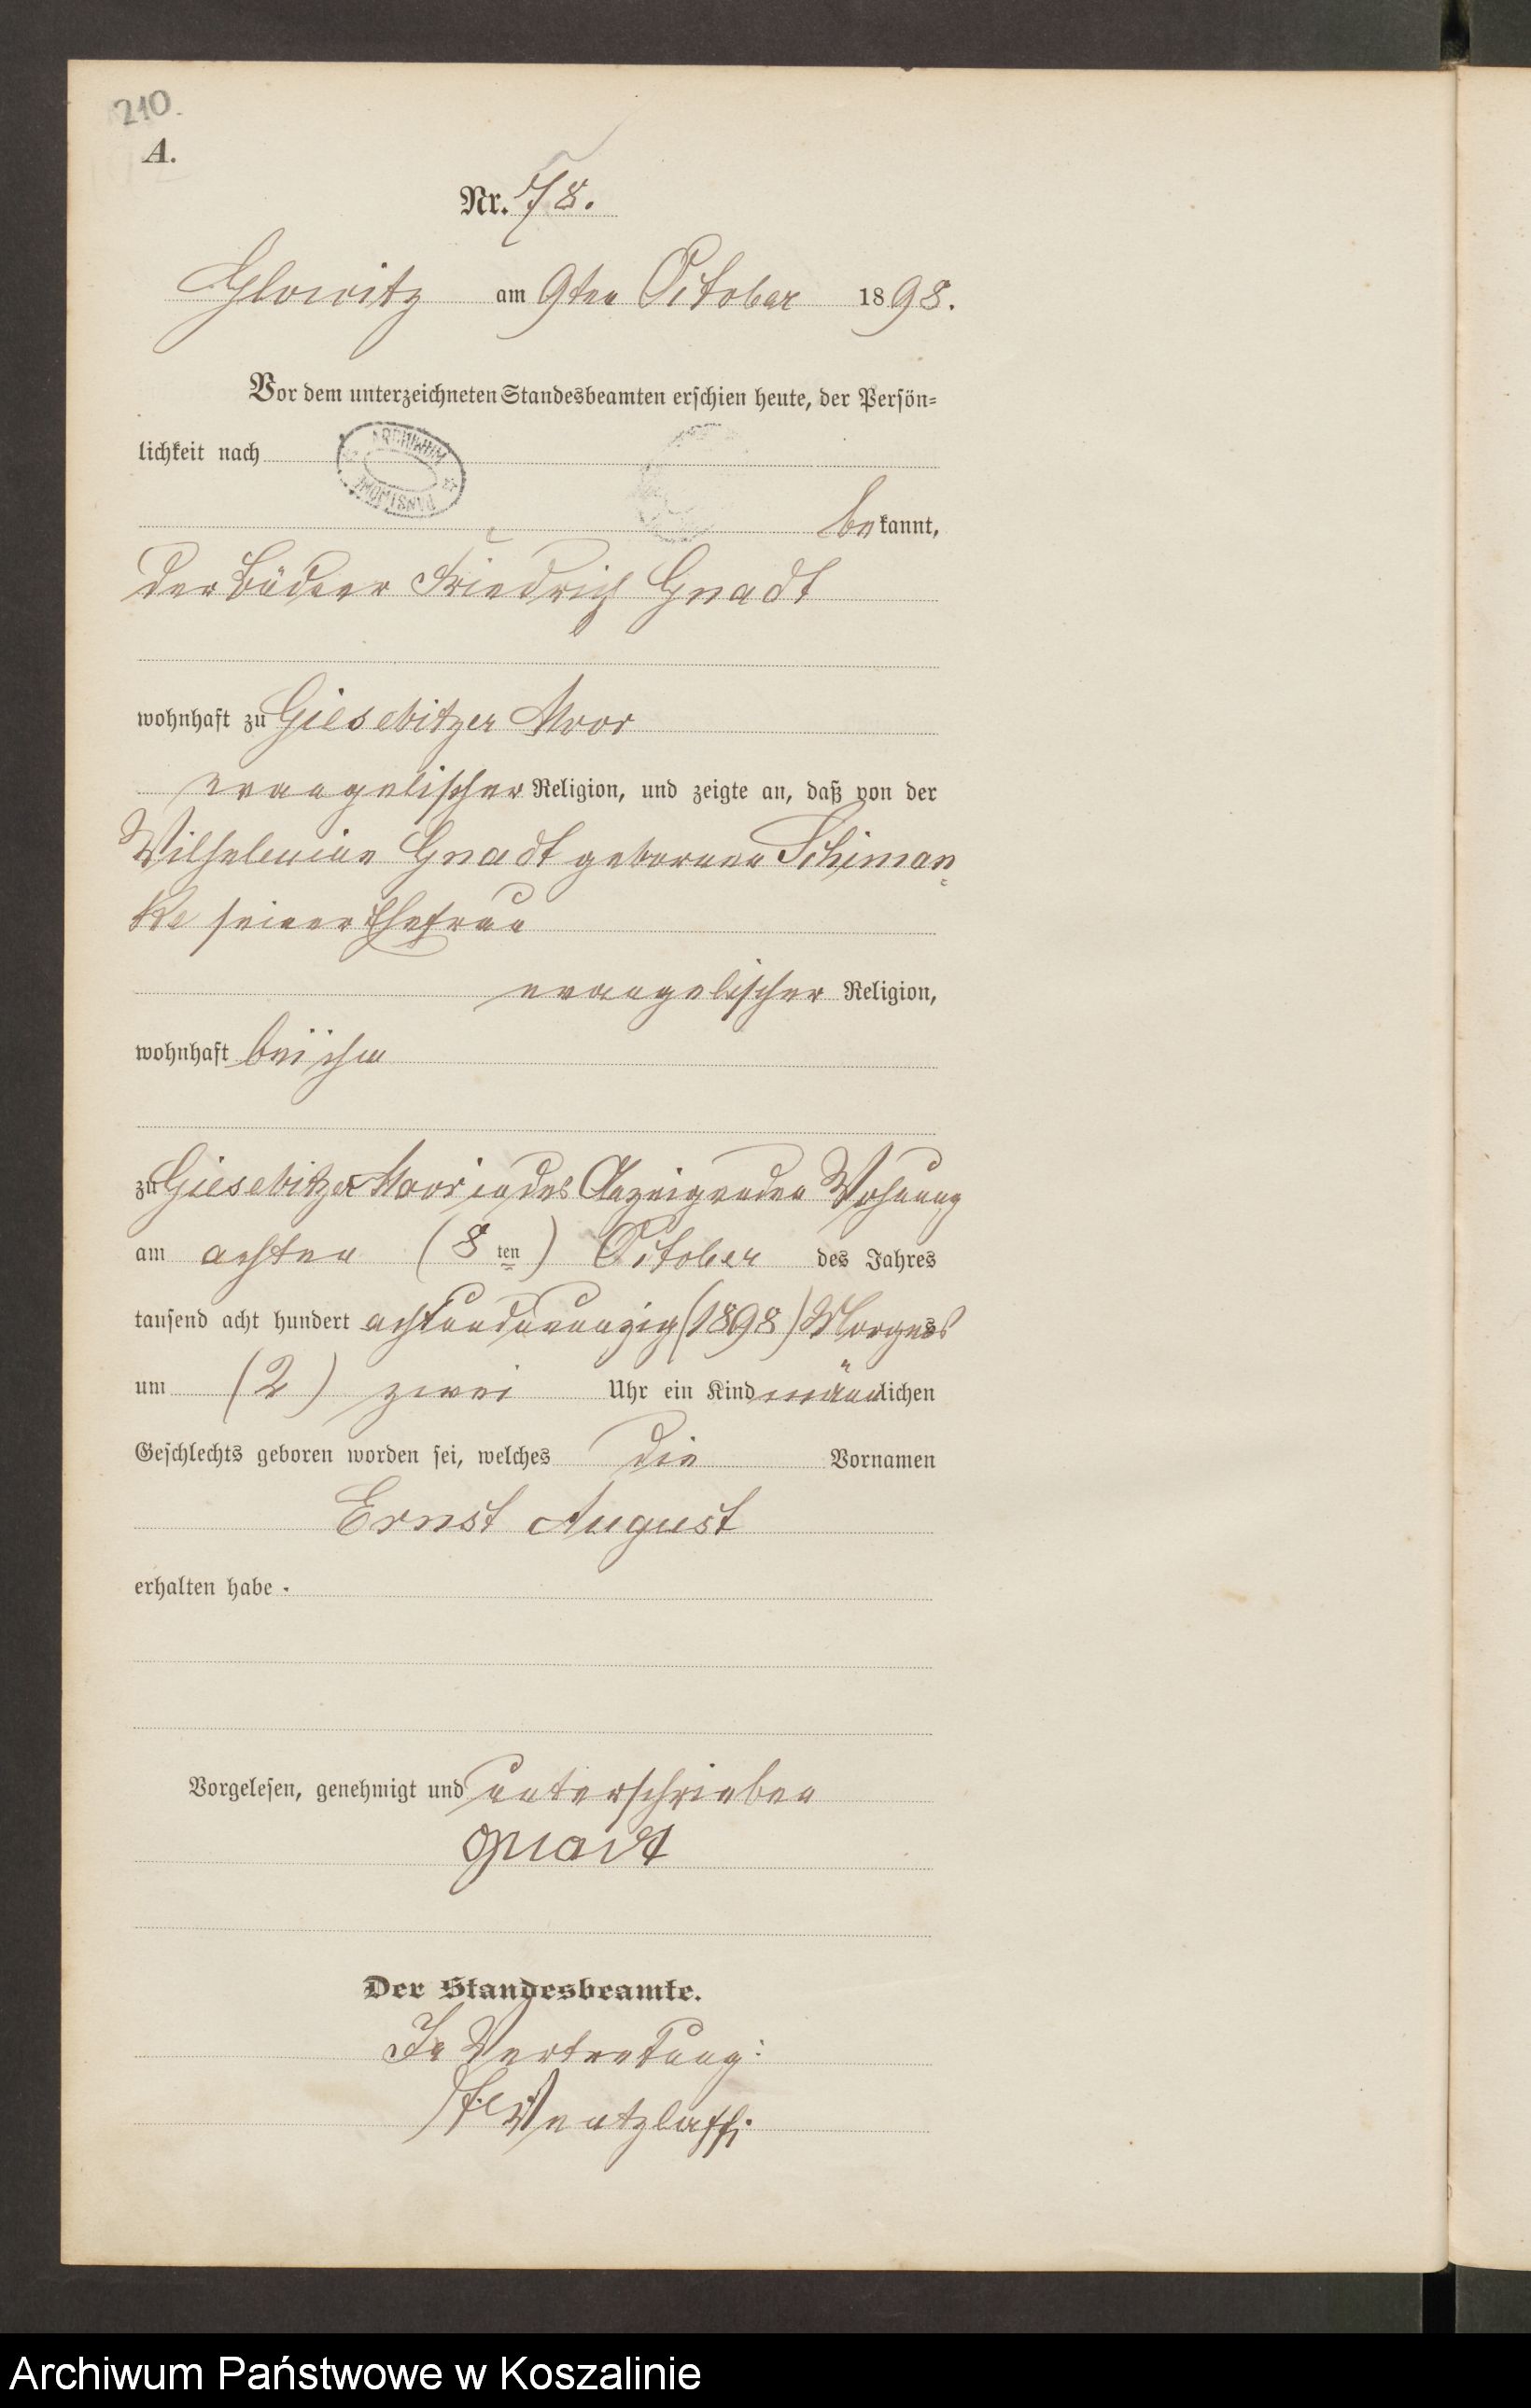 210.
A.
Nr. 78.
Glowitz am 9ten October 1898.
Vor dem unterzeichneten Standesbeamten erschien heute, der Persön=
lichkeit nach
ARCHIWUM PAŃSTWOWE
bekannt,
der Büdner Friedrich Gnadt
wohnhaft zu Giesebitzer Moor
evangelischer Religion, und zeigte an, daß von der
Wilhelmine Gnadt geborene Schiman=
ke seiner Ehefrau
evangelischer Religion,
wohnhaft bei ihm
zu Giesebitzer Moor in des Anzeigenden Wohnung
am achten (8ten) October des Jahres
tausend acht hundert achtundneunzig (1898) Morgens
um (2) zwei Uhr ein Kind männlichen
Geschlechts geboren worden sei, welches die Vornamen
Ernst August
erhalten habe.
Vorgelesen, genehmigt und unterschrieben
Gnadt
Der Standesbeamte.
In Vertretung:
Wentzlaff.
Archiwum Państwowe w Koszalinie